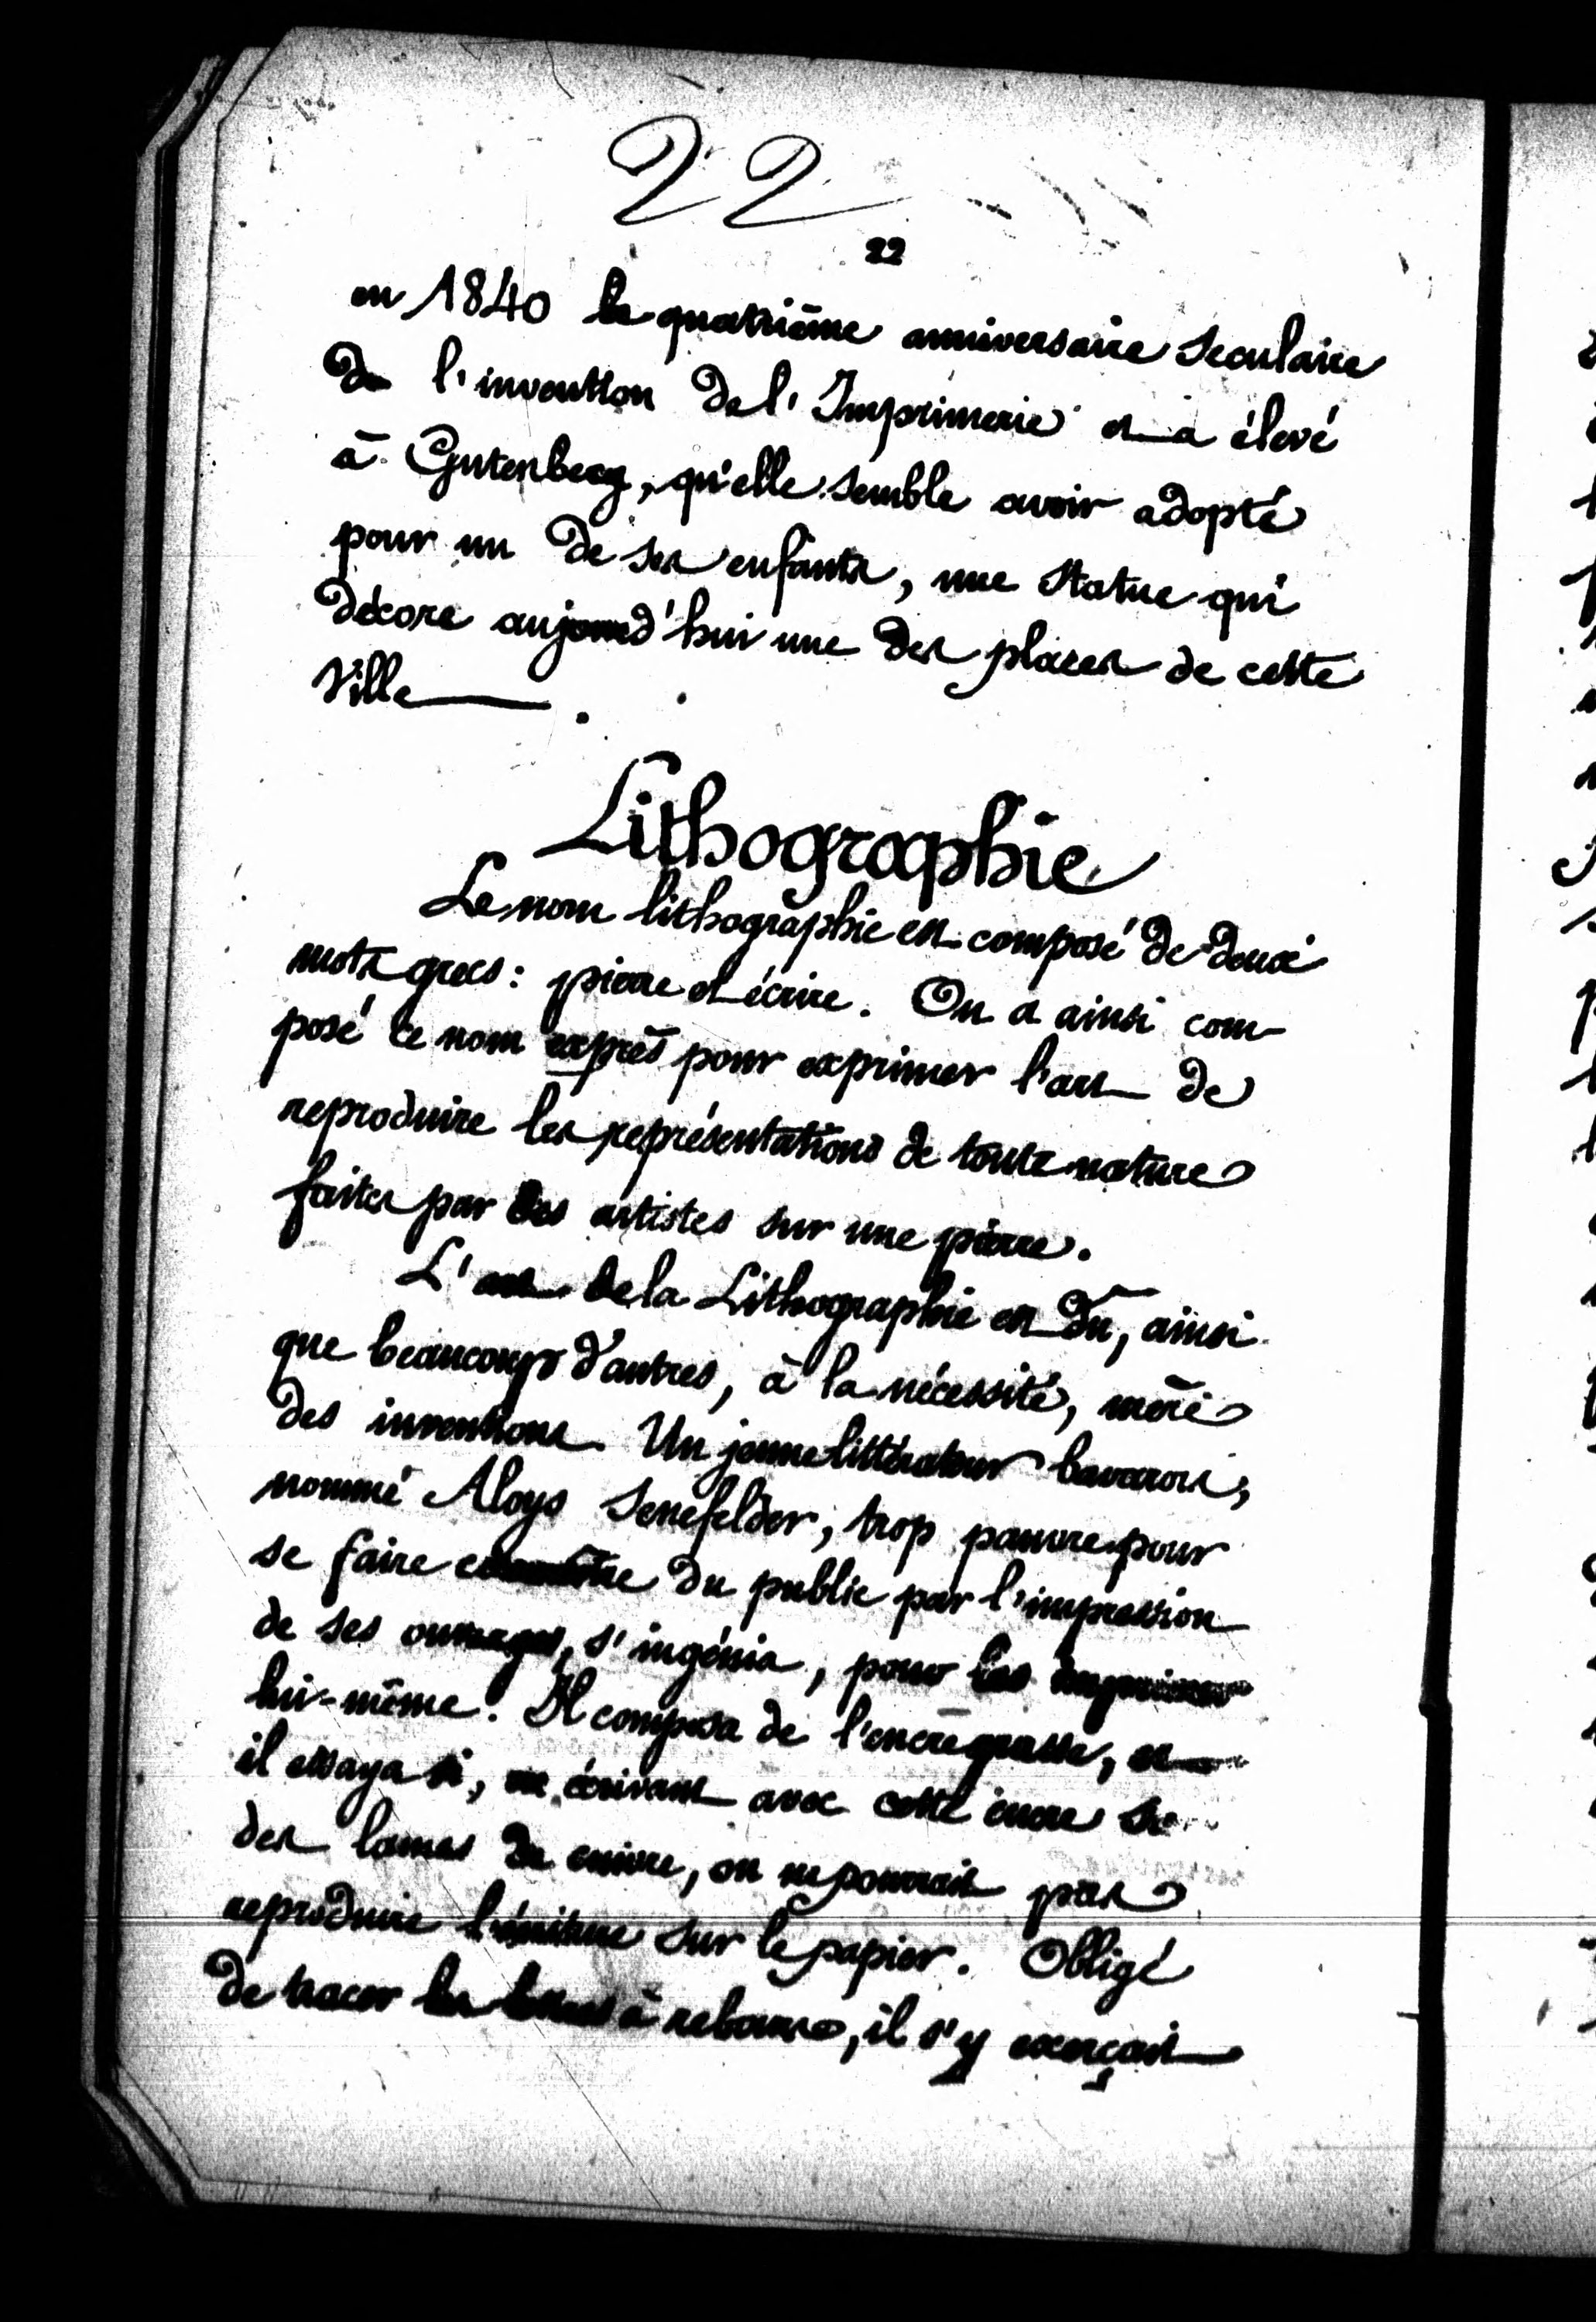 22
22
en 1840 le quatrième anniversaire séculaire
de l'invention de l'Imprimerie et a élevé
à Gutenberg, qu'elle semble avoir adopté
pour un de ses enfants, une statue qui
décore aujourd'hui une des places de cette
Ville.
Lithographie
Le nom lithographie est composé de deux
mots grecs : pierre et écrire. On a ainsi com-
posé ce nom exprès pour exprimer l'art de
reproduire les représentations de toute nature
faites par des artistes sur une pierre.
L'art de la Lithographie est dû, ainsi
que beaucoup d'autres, à la nécessité, mère
des inventions. Un jeune littérateur bavarois,
nommé Aloys Senefelder, trop pauvre pour
se faire connaître du public par l'impression
de ses ouvrages, s'ingénia, pour les imprimer
lui-même. Il composa de l'encre grasse, et
il essaya si, en écrivant avec cette encre
des lames de cuivre, on ne pourrait pas
reproduire l'écriture sur le papier. Obligé
de tracer les lettres à rebours, il s'y exerçait